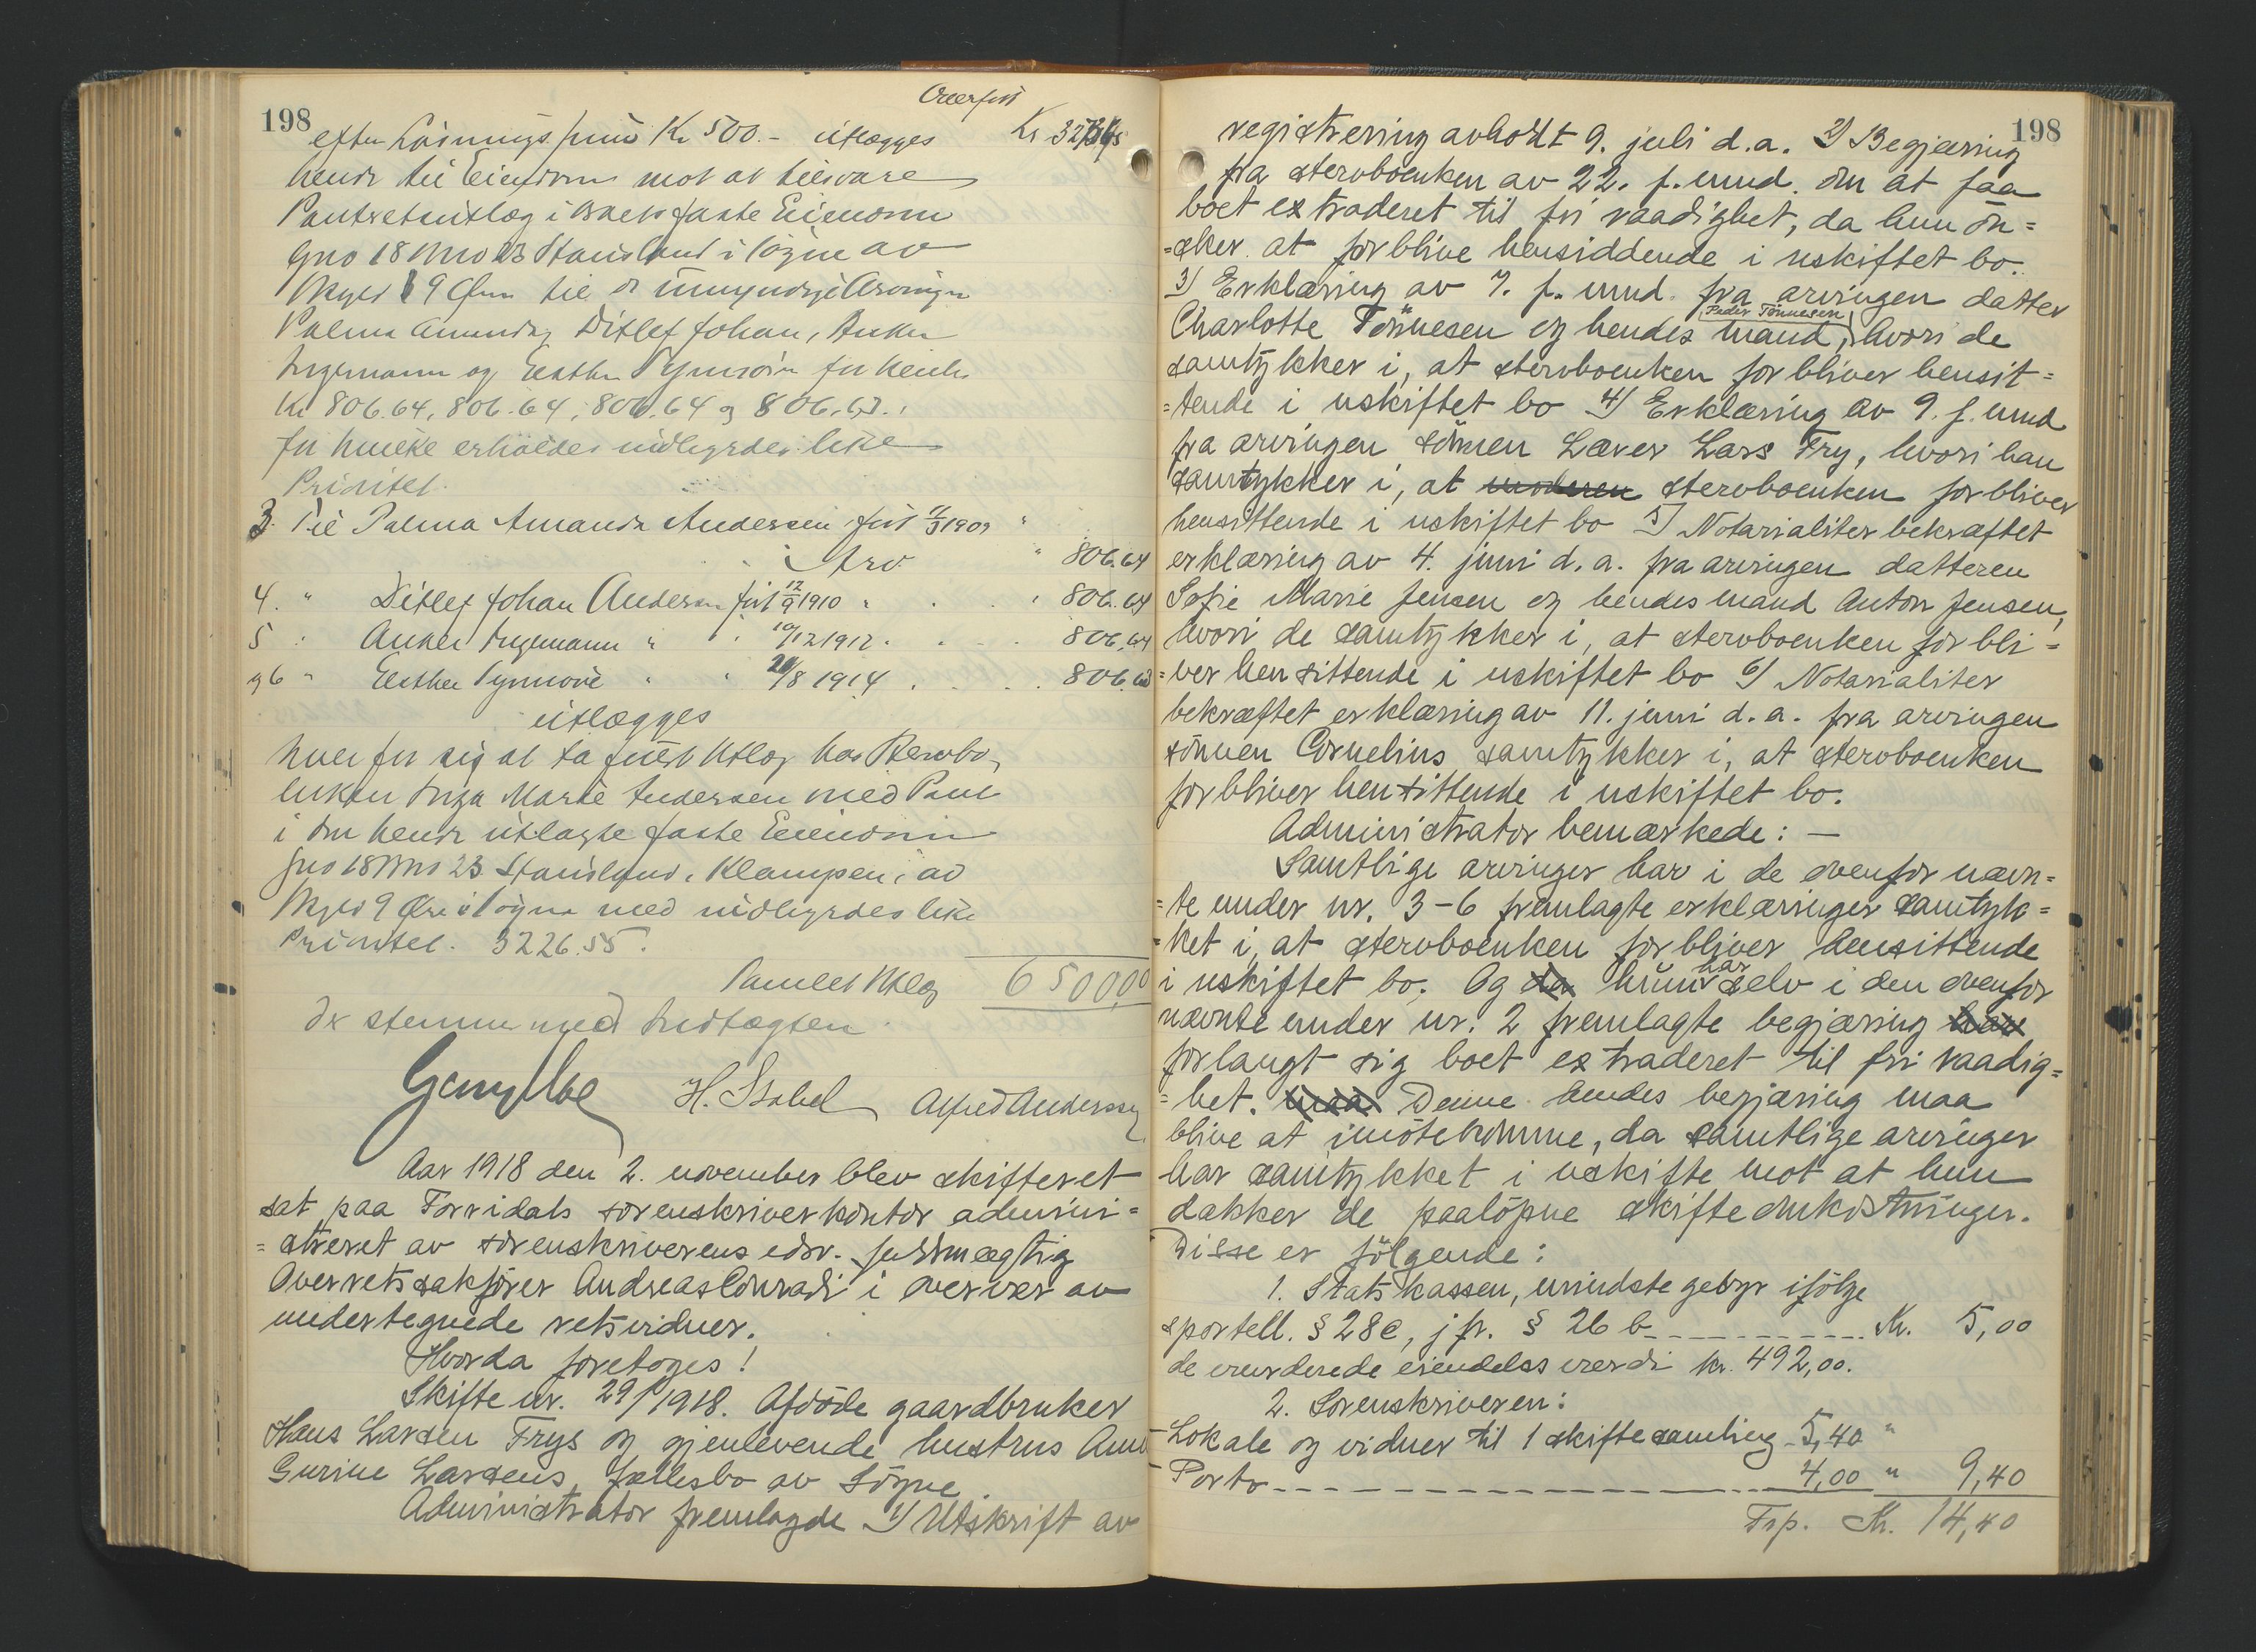 198
Overført
efter Løsningssum Kr 500.- utlægges Kr 3273.45
hende til Eiendom mot at tilsvare
Pantretsutlæg i den faste Eiendom
Gno 18 Bno 23 Stausland i Søgne av
Skyld 9 Øre til de umyndige Arvinger
Palma Amanda, Ditlef Johan, Anker
Ingemann og Esther Synnøve for henh.
Kr 806.64, 806.64, 806.64 og 806.63.,
for hvilke erholdes indbyrdes like
Prioritet.
3. Til Palma Amanda Andersen født 11/3 1909
Arv " 806.64
4. " Ditlef Johan Andersen født 12/9 1910 " 806.64
5 " Anker Ingemann " " 10/12 1912 " 806.64
og 6 " Esther Synnøve " " 21/8 1914 . 806.63
utlægges
hver for sig at ta fuldt Utlæg hos Stervbo-
enken Inga Marie Andersen med Pant
i den hende utlagte faste Eiendom
Gno 18 Bno 23 Stausland, Klampen, av
Skyld 9 Øre i Søgne med indbyrdes like
Prioritet. 3226.55.
Samlet Utlæg 6500,00
der stemmer med Indtægten.
H. Stabel Alfred Andersen
Aar 1918 den 2. november blev skifteret
sat paa Torridals sorenskriverkontor admini-
=streret av sorenskriverens edsv. fuldmægtig
Overretssakfører Andreas Conradi i overvær av
undertegnede retsvidner.
Hvorda foretoges!
Skifte nr. 29/1918. Afdøde gaardbruker
Hans Larsen Trys og gjenlevende hustrus Anne
Gurine Larsens fællesbo av Søgne.
Administrator fremlagde 1) Utskrift av
198
registrering avholdt 9. juli d.a. 2) Begjæring
fra stervboenken av 22. f. mnd. om at faa
boet extraderet til fri raadighet, da hun øn=
=sker at forblive hensiddende i uskiftet bo.
3) Erklæring av 7. f. mnd. fra arvingen datter
Peder Tönnesen
Charlotte Tönnesen og hendes mand, hvori de
samtykker i, at stervboenken forbliver hensit=
=tende i uskiftet bo 4) Erklæring av 9. f. mnd
fra arvingen sönnen Lærer Lars Try, hvori han
samtykker i, at moderen stervboenken forbliver
hensittende i uskiftet bo 5) Notarialiter bekræftet
erklæring av 4. juni d.a. fra arvingen datteren
Sofie Marie Jensen og hendes mand Anton Jensen,
hvori de samtykker i, at stervboenken forbli=
=ver hensittende i uskiftet bo 6) Notarialiter
bekræftet erklæring av 11. juni d.a. fra arvingen
sönnen Cornelius samtykker i, at stervboenken
forbliver hensittende i uskiftet bo.
Administrator bemærkede: —
Samtlige arvinger har i de ovenfor nævn=
=te under nr. 3-6 fremlagte erklæringer samtyk=
=ket i, at stervboenken forbliver hensittende
har
i uskiftet bo. Og da hun selv i den ovenfor
nævnte under nr. 2 fremlagte begjæring har
forlangt sig boet extraderet til fri raadig=
=het. maa Denne hendes begjæring maa
blive at imötekomme, da samtlige arvinger
har samtykket i uskifte mot at hun
dækker de paalöpne skifteomkostninger.
Disse er fölgende:
1. Statskassen, mindste gebyr ifölge
sportell. § 28c, jfr. § 26 b Kr. 5,00
de vurderede eiendeles værdi kr. 492,00.
2. Sorenskriveren:
Lokale og vidner til 1 skiftesamling 5,40 "
Porto 4,00 " 9,40
Trp. Kr. 14,40